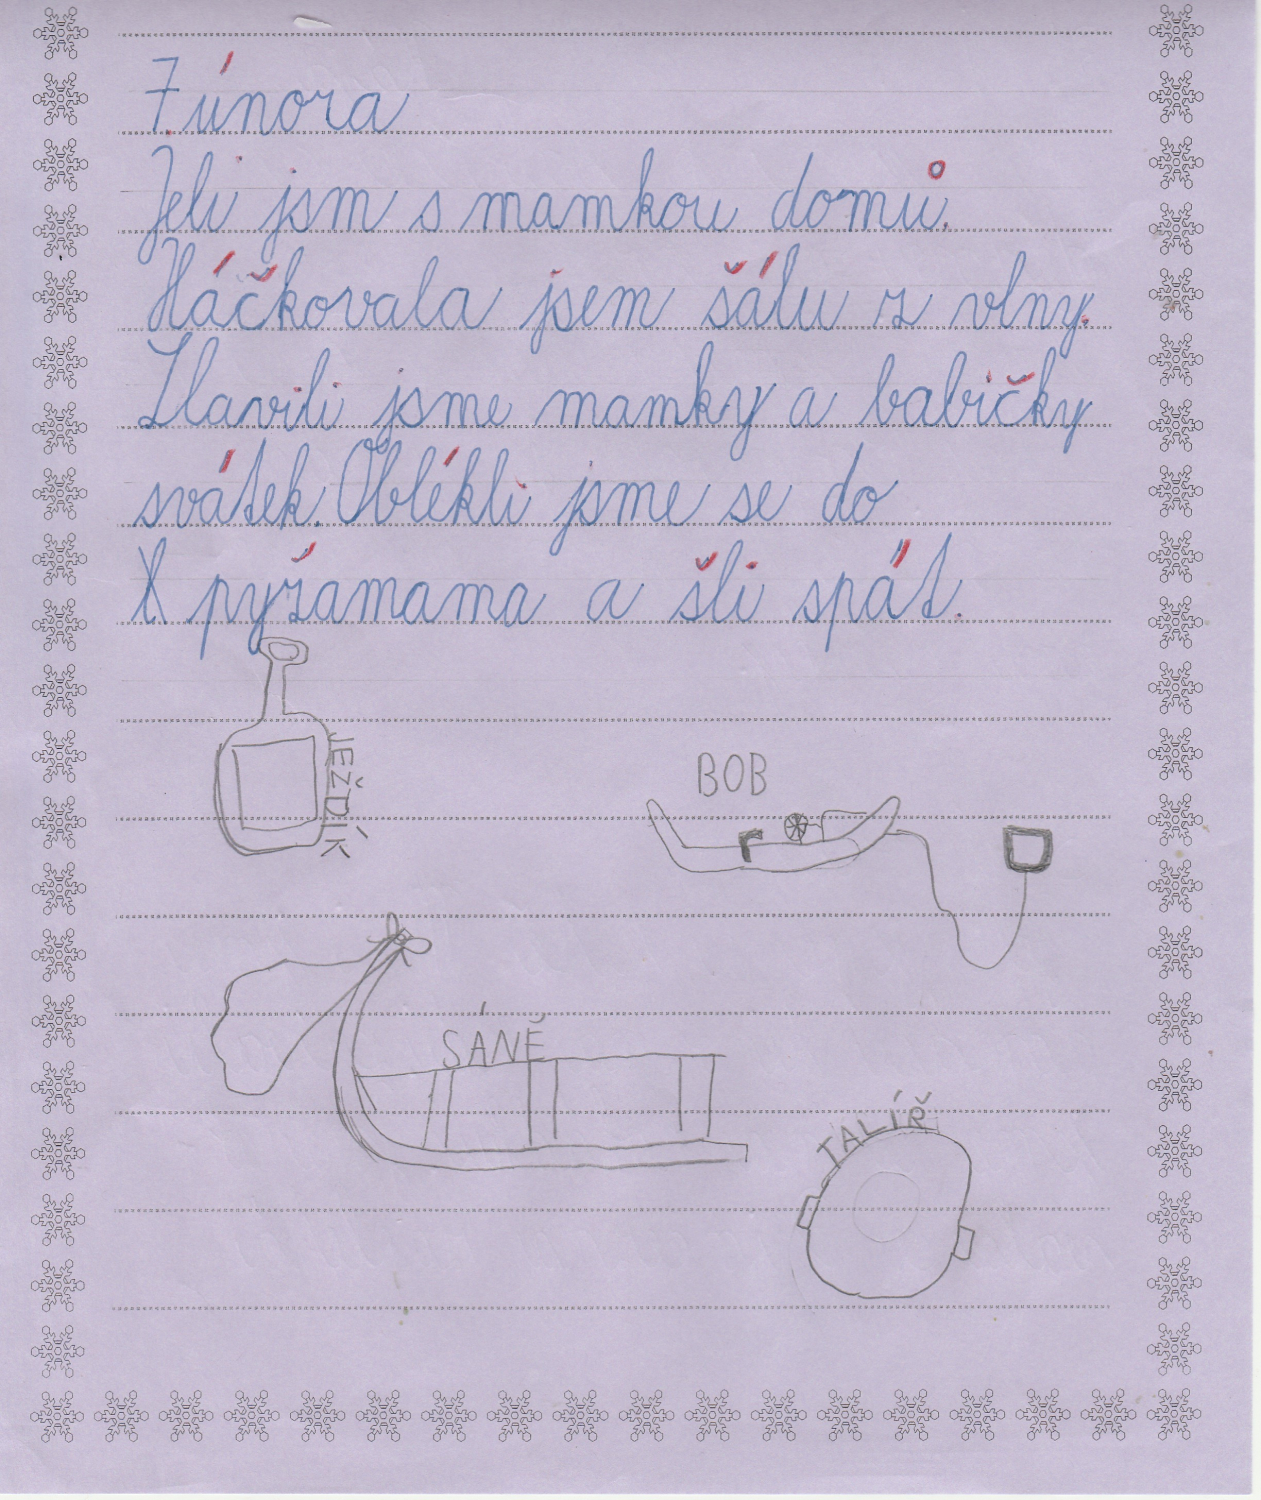 7. února
Jeli jsm s mamkou domů.
Háčkovala jsem šálu z vlny.
Slavili jsme mamky a babičky
svátek. Oblékli jsme se do
pyžamama a šli spát.
JEŽDÍK
BOB
SÁNĚ
TALÍŘ